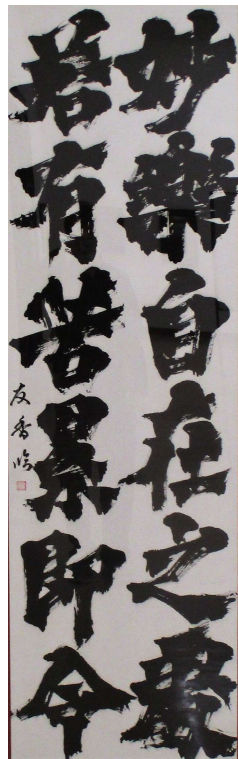 妙樂自在之處
若有苦累即令
友香臨